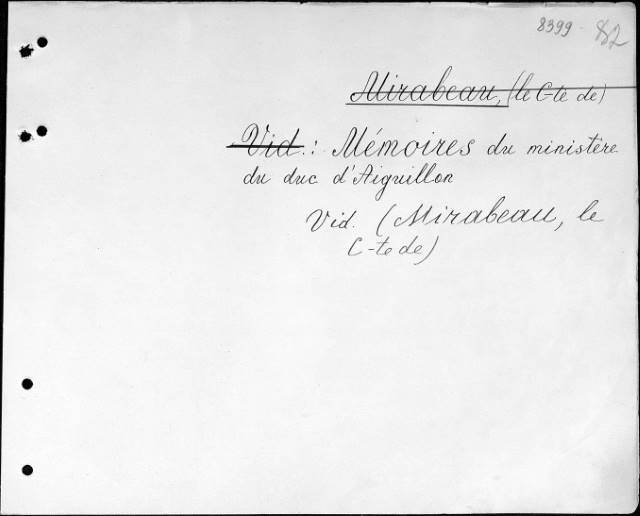 8399 82
Mirabeau, (le C-te de)
Vid.: Mémoires du ministère
du duc d'Aiguillon
Vid. (Mirabeau, le
C-te de)